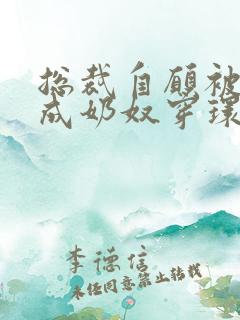 总裁自愿被
成奶奴穿环
李德信
未经同意禁止转载